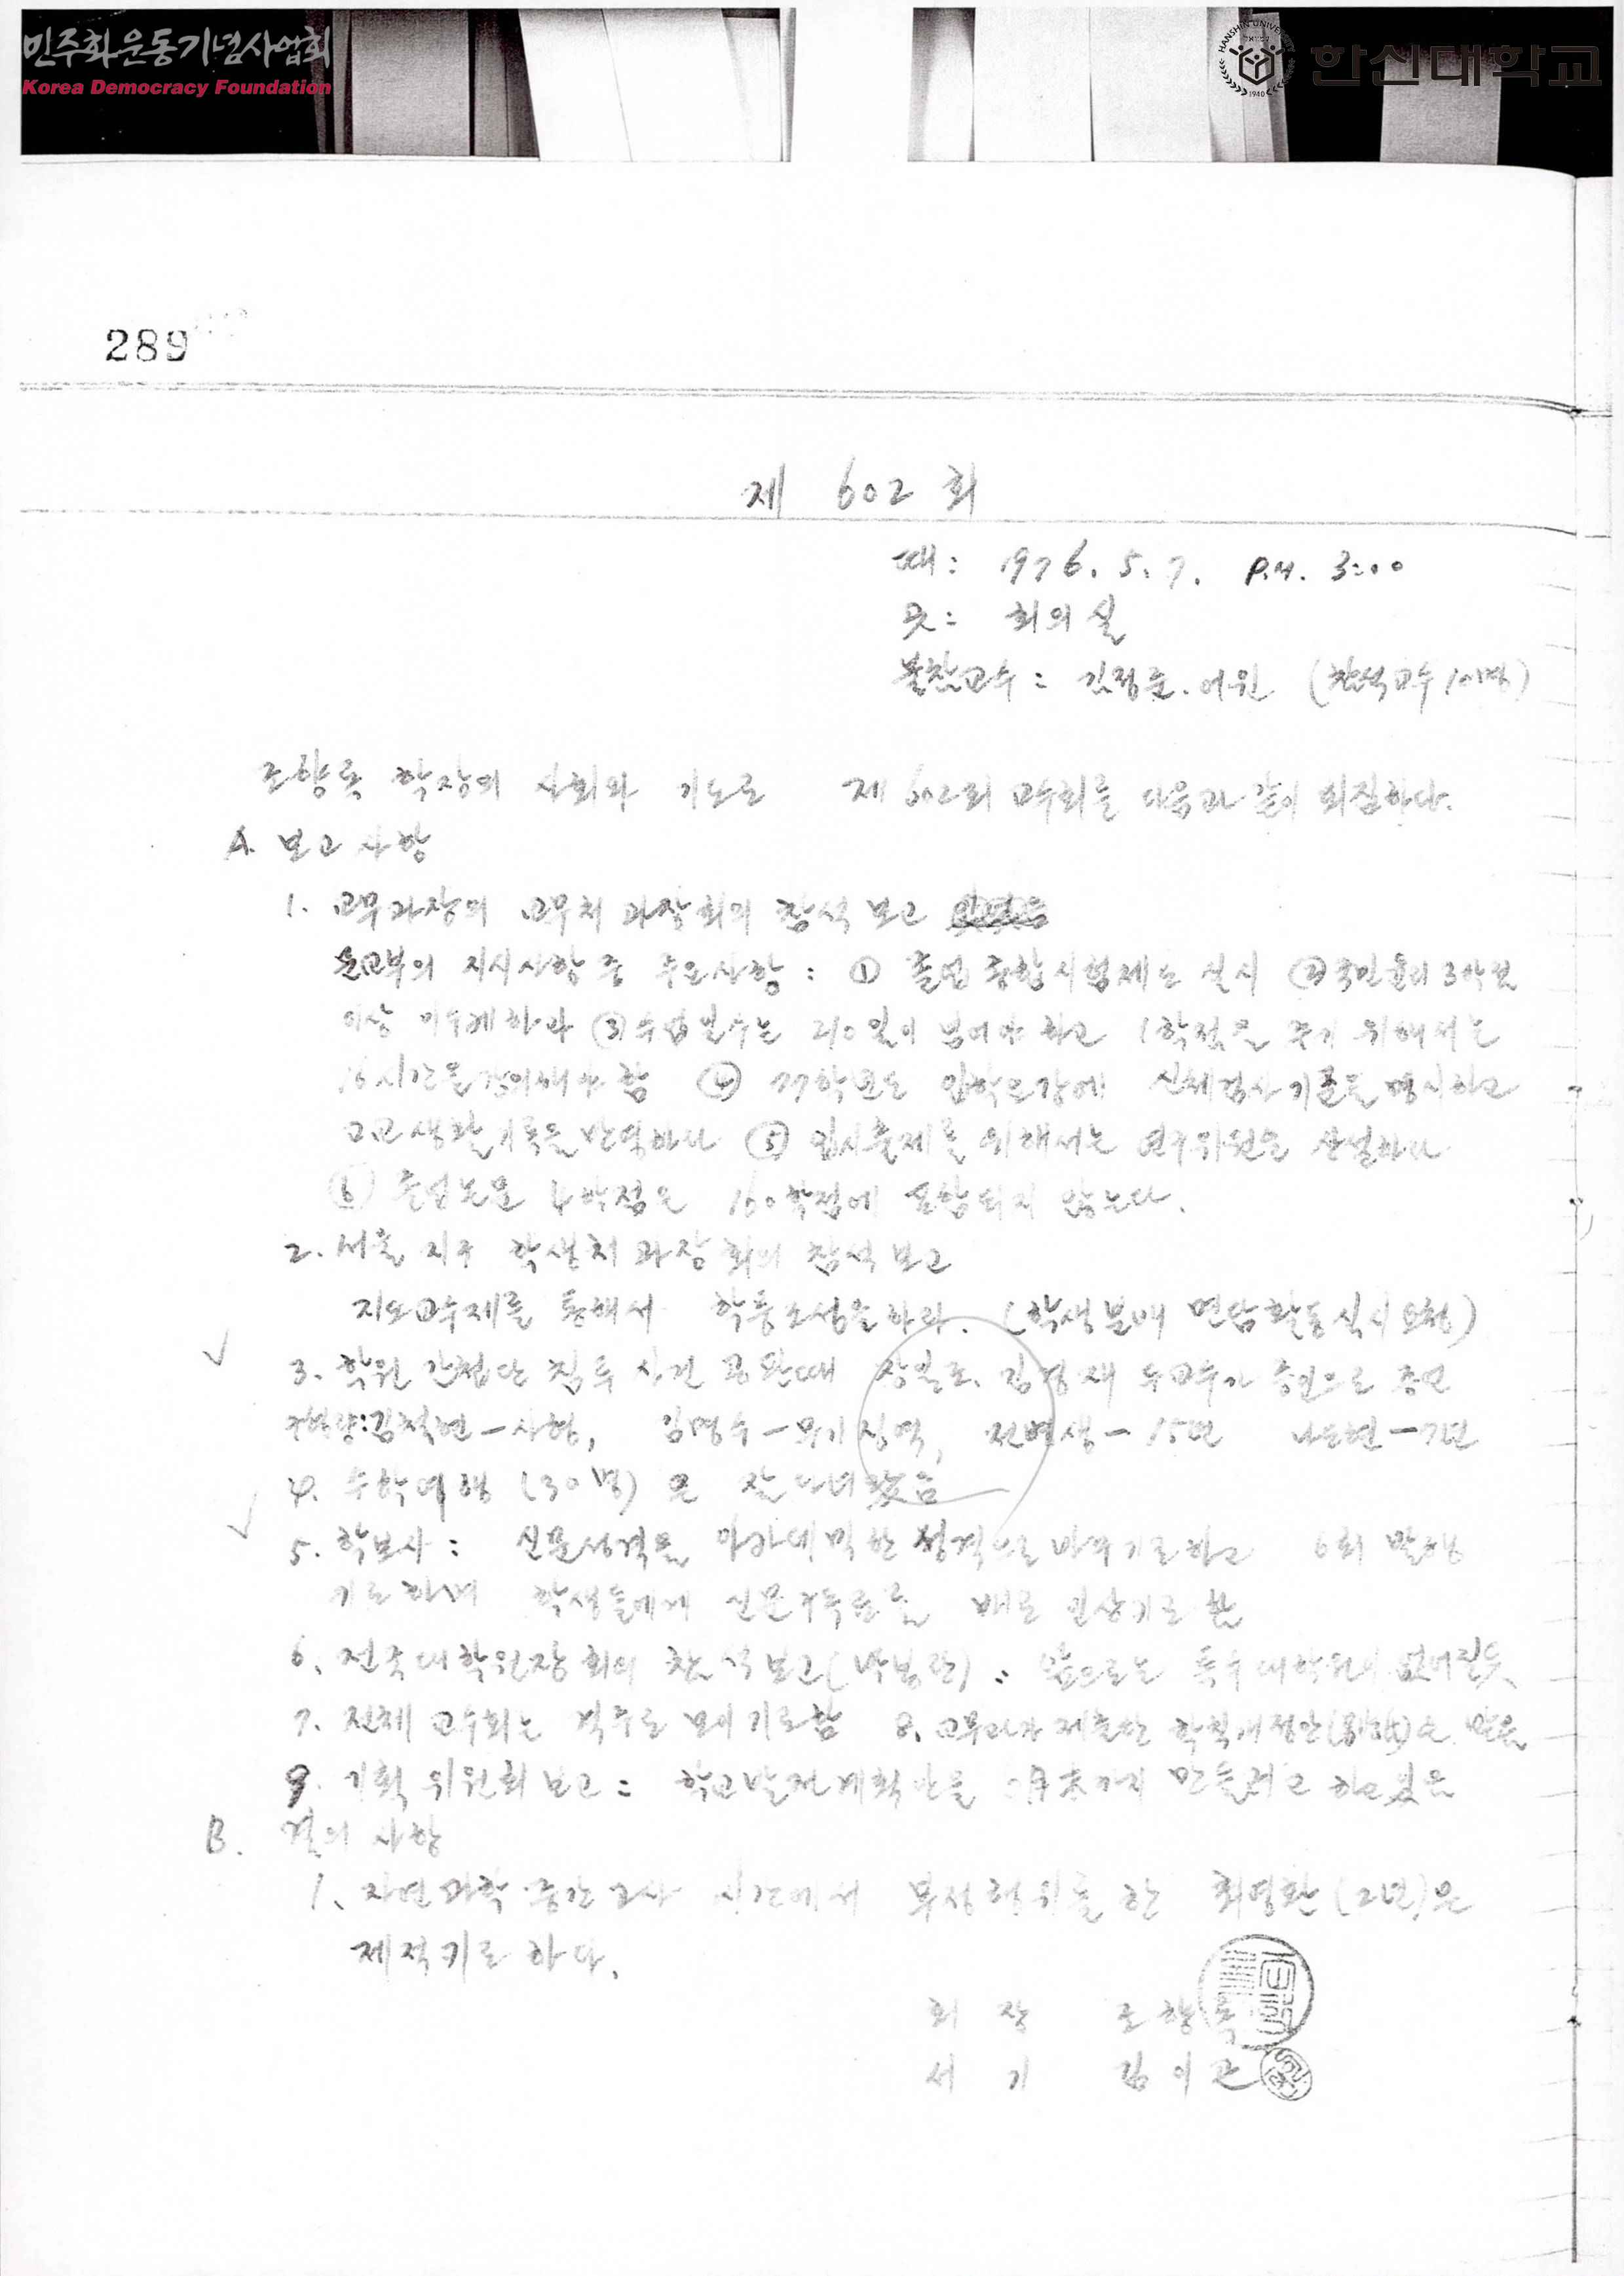 민주화운동기념사업회
Korea Democracy Foundation
HANSHIN UNIVERSITY
1940
한신대학교
289
제 602 회
때: 1976. 5. 7. P.M. 3:00
곳: 회의실
불참교수: 김정준. 어원 (참석교수 10명)
조향록 학장의 사회와 기도로 제602회 교수회를 다음과 같이 회집하다.
A. 보고사항
1. 교무과장의 교무처 과장회의 참석 보고
문교부의 지시사항 중 주요사항: ① 졸업종합시험제도 실시 ② 국민윤리 3학점
이상 이수케하라 ③ 수업일수는 210일이 넘어야 하고 1학점을 주기 위해서는
16시간을 강의해야 함 ④ 77학년도 입학요강에 신체검사기준을 명시하고
고교생활기록을 반영하라 ⑤ 입시출제를 위해서는 연구위원을 상설하라
⑥ 졸업논문 4학점은 160학점에 포함되지 않는다.
2. 서울지구 학생처 과장회의 참석 보고
지도교수제를 통해서 학풍조성을 하라. (학생분배 면담활동실시 요청)
3. 학원 간첩단 침투 사건 공판때 장일조, 김경재 두교수가 증인으로 증언
김철현-사형, 김명수-무기징역, 전병생-15년 나도현-7년
4. 수학여행 (30명)은 잘 다녀왔음
5. 학보사: 신문성격을 아카데믹한 성격으로 바꾸기로하고 6회 발행
기로 하며 학생들에게 신문구독료를 배로 인상키로 함
6. 전국대학원장 회의 참석보고(박봉랑): 앞으로는 특수대학원이 없어질듯
7. 전체 교수회는 격주로 모이기로함 8. 교무과가 제출한 학칙개정안 받음
9. 기획위원회 보고: 학교발전계획안을 月末까지 만들려고 하고있음
B. 결의사항
1. 자연과학 중간고사 시간에서 부정행위를 한 최영환(2년)은
제적키로 하다.
회장 조향록
서기 김이곤